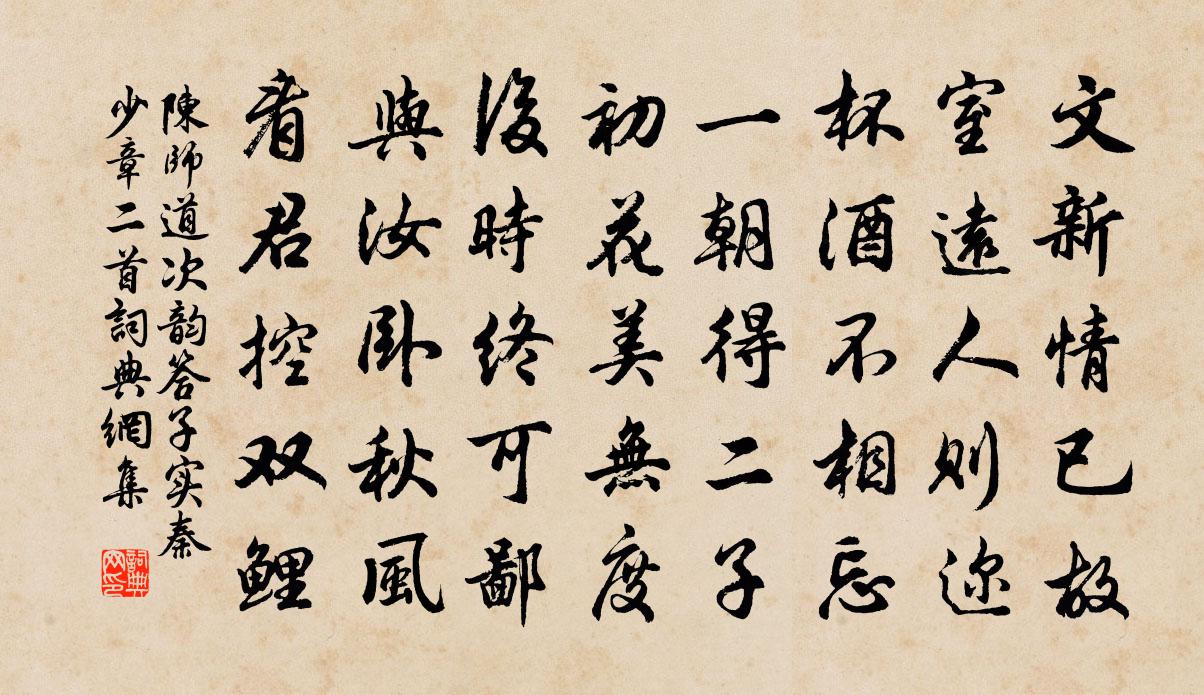 文新情已故
室遠人則迩
杯酒不相忘
一朝得二子
初花美無度
後時終可鄙
與汝卧秋風
看君控双鯉
陳師道次韵答子实秦
少章二首詞典網集
詞典网印